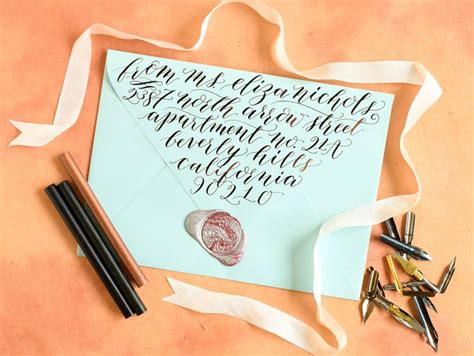 from ms. eliza nichols
2387 north arrow street
apartment no. 21R
beverly hills
california
90210